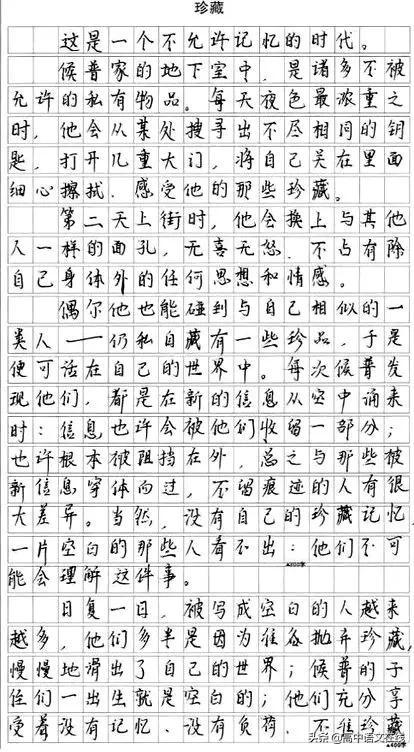 珍藏
这是一个不允许记忆的时代。
候普家的地下室中，是诸多不被
允许的私有物品。每天夜色最浓重之
时，他会从某处搜寻出不尽相同的钥
匙，打开几重大门，将自己关在里面
细心擦拭．感受他的那些珍藏。
第二天上街时，他会换上与其他
人一样的面孔，无喜无怒．不占有除
自己身体外的任何思想和情感。
偶尔他也能碰到与自己相似的一
类人——仍私自藏有一些珍品，于是
便可活在自己的世界中。每次候普发
现他们，都是在新的信息从空中涌来
时：信息也许会被他们收留一部分；
也许根本被阻挡在外，总之与那些被
新信息字体向过，不留痕迹的人有很
大差异。当然，没有自己的珍藏记忆，
一片空白的那些人看不出：他们不可
能会理解这件事。
日复一日，被写成空白的人越来
越多，他们多半是因为准备抛弃珍藏，
慢慢地滑出了自己的世界；候普的子
侄们一出生就是空白的；他们充分享
受着没有记忆、没有负荷．不准珍藏
头条@高中语文在线